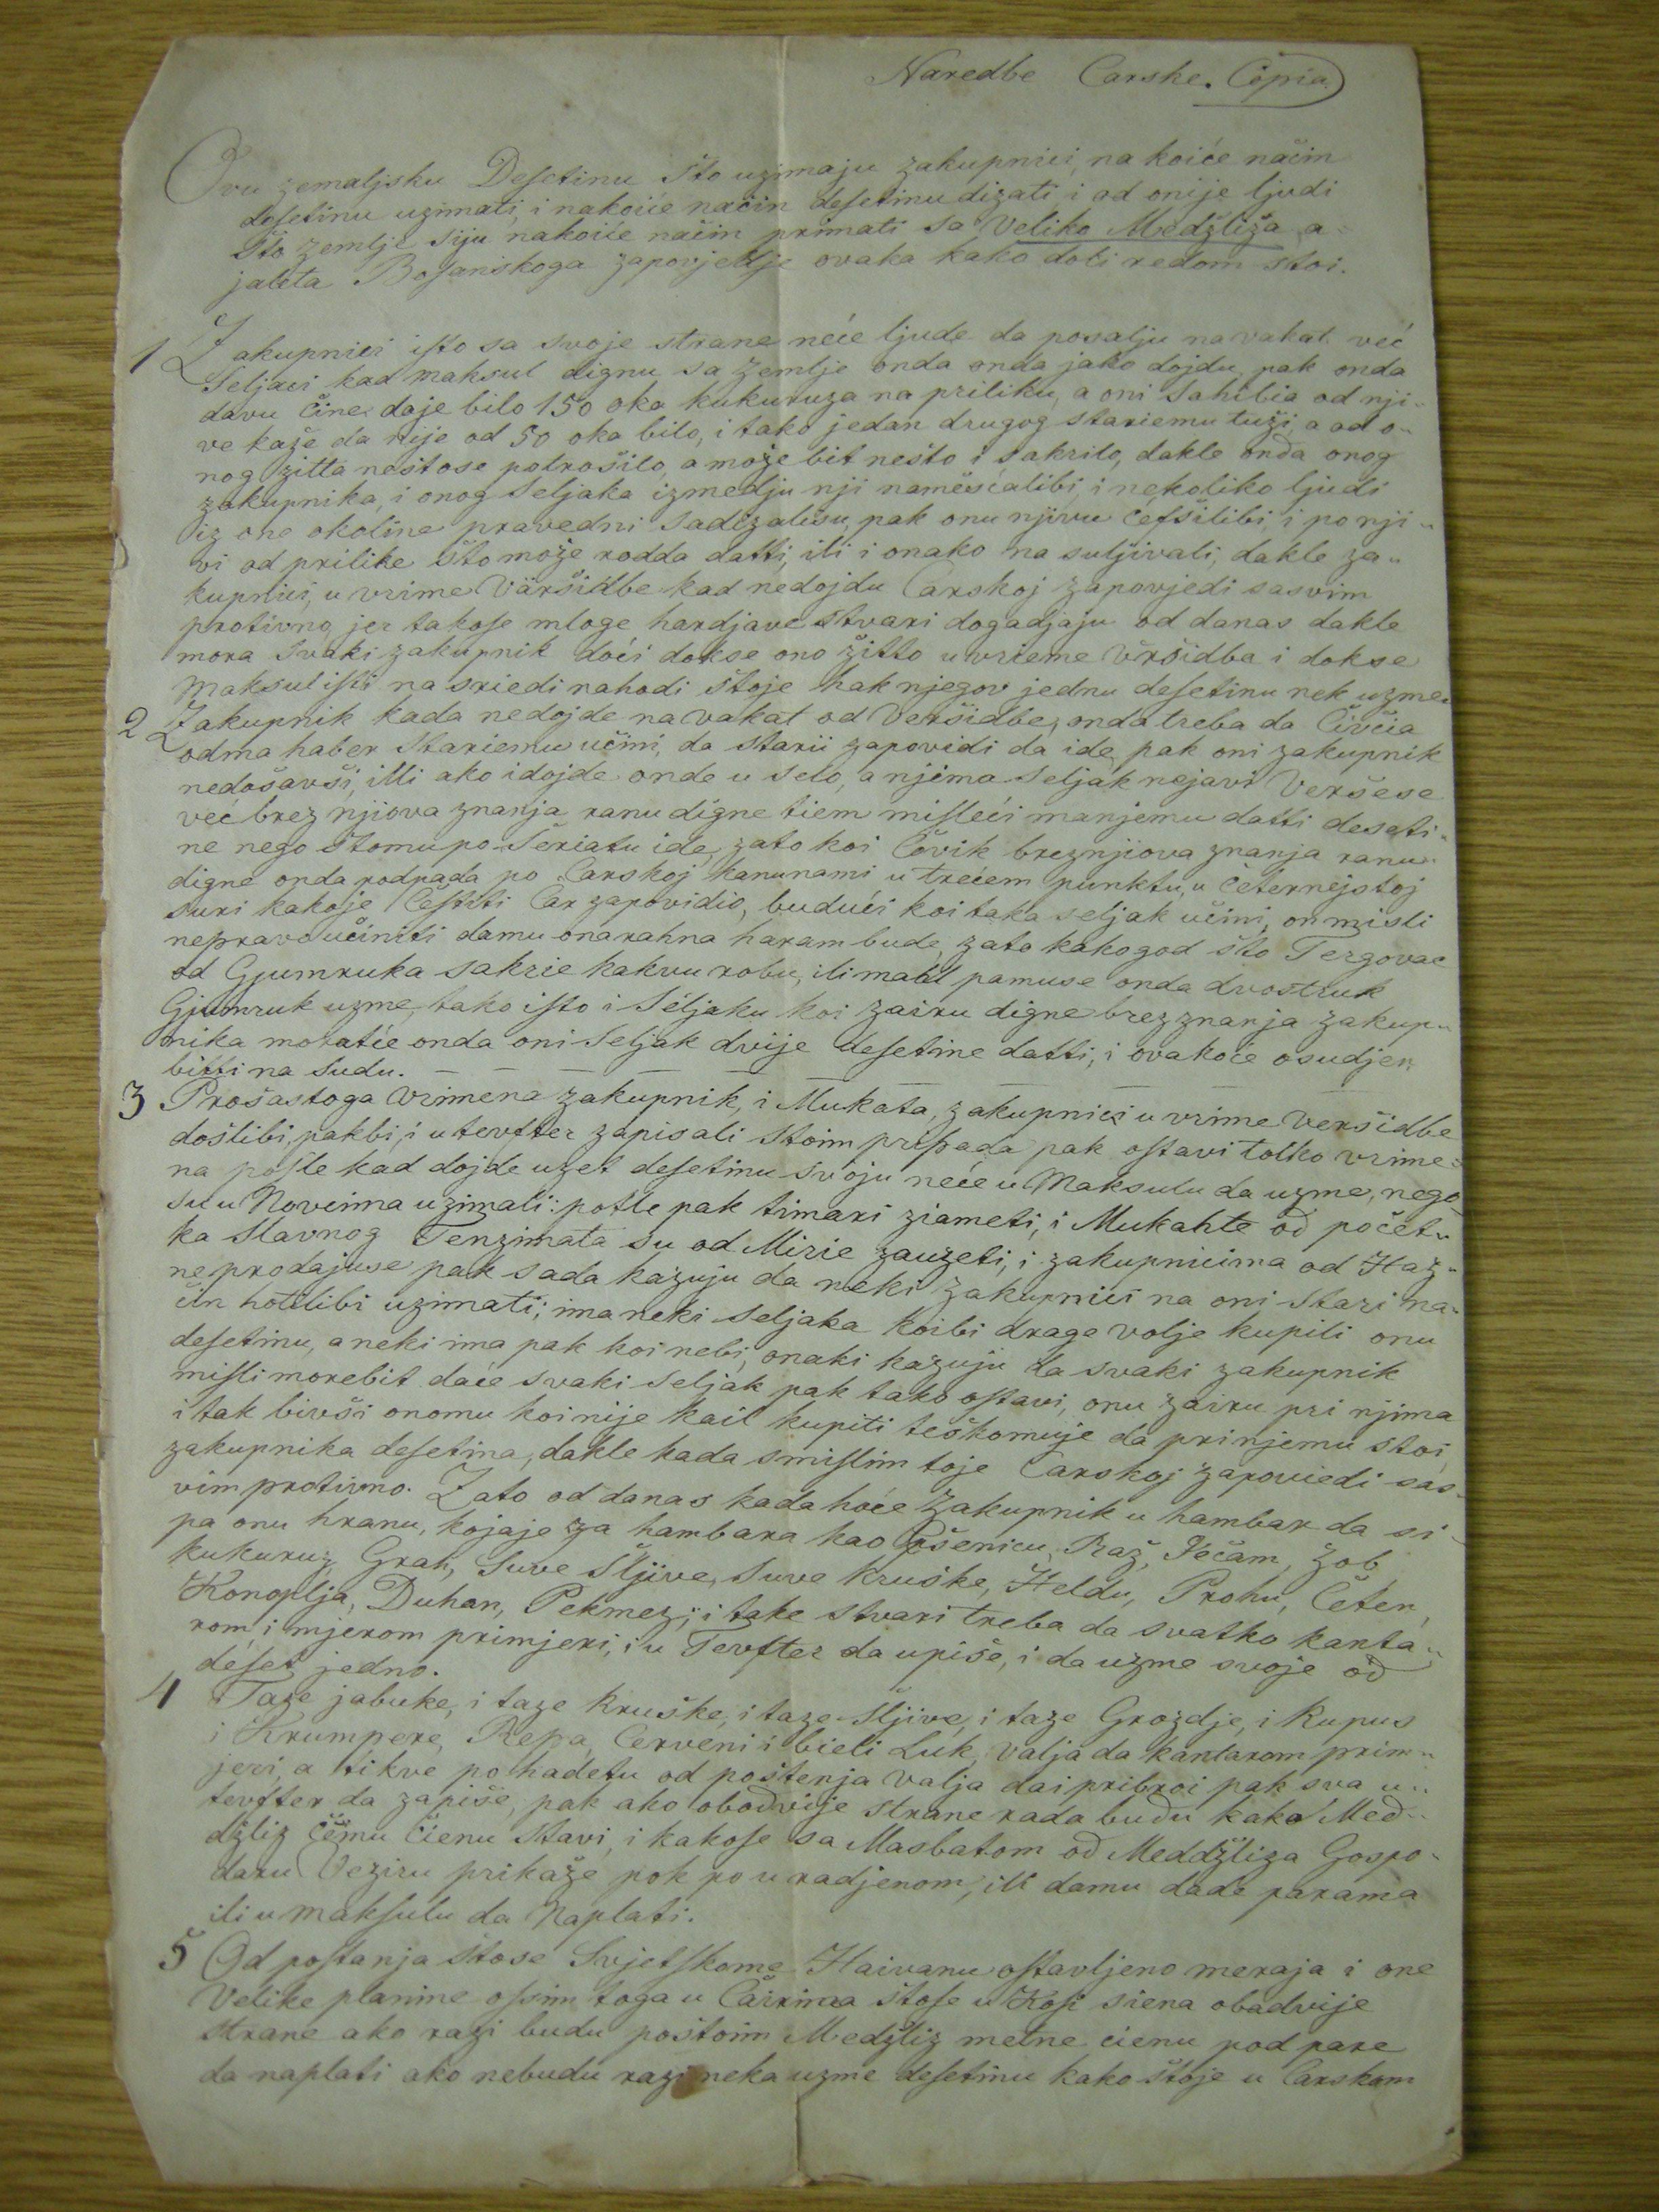 Naredbe Carske. Copia.
Ovu zemaljsku Desetinu što uzimaju zakupnici, na koiće način
desetinu uzimati, i nakoiće način desetinu dizati, i od onije ljudi
što zemlje siju nakoiće način primati sa Veliko Medžliža a-
jaleta Bosanskoga zapovjedje ovako kako doli redom stoi.
1 Zakupnici isto sa svoje strane neće ljude da posalju navakat već
Seljaci kad maksul dignu sa zemlje onda onda jako dojdu, pak onda
davu čine daje bilo 150 oka kukuruza na priliku, a oni Sahibia od nji-
ve kaže da nije od 50 oka bilo, i tako jedan drugog stariemu tuži, a od o-
nog žitta neštose potrošilo, a može bit nešto i sakrilo, dakle onda onog
zakupnika, i onog Seljaka izmedju nji namešćalibi, i nekoliko ljudi
iz one okoline pravedni Sadizalisu, pak onu njivu česšilibi, i po nji-
vi od prilike što može rodda datti, ili i onako na suljivali, dakle za-
kupnici, u vrime Väršidbe kad nedojdu Carskoj zapovjedi sasvim
protivno, jer takose mloge hardjave stvari dogadjaju od danas dakle
mora svaki zakupnik doći dokse ono žitto u vrieme vršidba i dokse
Maksul isti na sriedi nahodi štoje hak njegov jednu desetinu nek uzme.
2 Zakupnik kada nedojde na vakat od Veršidbe, onda treba da Čivčia
odma haber Stariemu učini, da starii zapovidi da ide, pak oni zakupnik
nedošavši, illi ako idojde onde u selo, a njima Seljak nejavi Veršese
već brez njiova znanja ranu digne tiem misleći manjemu datti deseti-
ne nego štomu po Šeriatu ide, zato koi Čovik breznjiova znanja ranu
digne onda podpada po Carskoj kanunami u trećem punktu, u četernejstoj
suri kakoje Čestiti Car zapovidio, budući koi taka seljak učini, on misli
nepravo učiniti damu ona rahna haram bude, zato kakogod što Tergovac
od Gjumruka sakrie kakvu robu, ili mal pamuse onda dvostruk
Gjumruk uzme, tako isto i Seljaku koi zairu digne brez znanja zakup-
nika moratće onda oni Seljak dvije desetine datti, i ovakoće osudjen
bitti na Sudu.
3 Prošastoga vrimena zakupnik, i Mukata, zakupnici u vrime veršidbe
došlibi, pakbi, i u tevfter zapisali štoim pripada pak ostavi tolko vrime-
na posle kad dojde uzet desetinu svoju neće u Maksulu da uzme, nego
su u Novcima uzimali: posle pak timari ziameti, i Mukahte od počet-
ka slavnog Tenzimata su od Mirie zauzeti, i zakupnicima od Haz-
ne prodajuse pak sada kazuju da neki zakupnici na oni Stari na-
čin hotilibi uzimati; ima neki seljaka koibi drage volje kupili onu
desetinu, a neki ima pak koi nebi, onaki kazuju da svaki zakupnik
misli morebit daće svaki seljak pak tako ostavi, onu zairu pri njima
i tak bivši onomu koi nije kail kupiti teškomuje da prinjemu stoi
zakupnika desetina, dakle kada smislim toje Carskoj zapoviedi sas-
vim protivno. Zato od danas kada hoće zakupnik u hambar da si-
pa onu hranu, kojaje za hambara kao Pšenicu, Raž, Ječam, Zob,
kukuruz, Grah, Suve Šljive, Suve Kruške, Heldu, Prohu, Četen,
Konoplja, Duhan, Pekmez, i take stvari treba da svatko kanta-
rom, i mjerom primjeri, i u Tevfter da upiše, i da uzme svoje od
deset jedno.
4 Taze jabuke, i taze Kruške, i taze šljive, i taze Grozdje, i Kupus
i Krumpere, Repa, Cerveni i bieli Luk, valja da kantarom prim-
jeri, a tikve po hadetu od poštenja valja dai pribroi pak sva u-
tevfter da zapiše, pak ako obodvije strane rada budu kako Med-
džliz čemu cienu stavi, i kakose sa Masbatom od Meddžliza Gospo-
daru Veziru prikaže pok po uradjenom, ili damu dade parama
ili u maksulu da Naplati.
5 Od postanja štose Svjetskome Haivanu ostavljeno meraja i one
Velike planine ossim toga u Čairima štose u Kosi siena obadvije
strane ako razi budu poštoim Medžliz metne cienu pod pare
da naplati ako nebudu razi neka uzme desetinu kako štoje u Carskom